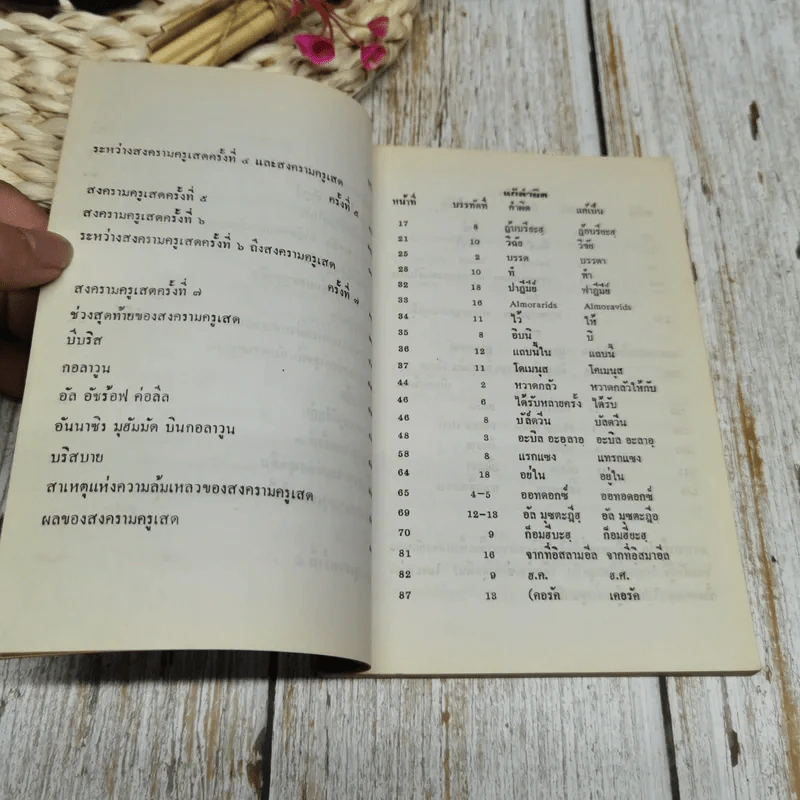 ระหว่างสงครามครูเสดครั้งที่ ๔ และสงครามครูเสด
ครั้งที่ ๕
สงครามครูเสดครั้งที่ ๕
สงครามครูเสดครั้งที่ ๖
ระหว่างสงครามครูเสดครั้งที่ ๖ ถึงสงครามครูเสด
ครั้งที่ ๗
สงครามครูเสดครั้งที่ ๗
ช่วงสุดท้ายของสงครามครูเสด
บีบริส
กอลาวูน
อัล อัชร็อฟ ค่อลีล
อันนาซิร มุฮัมมัด บินกอลาวูน
บริสบาย
สาเหตุแห่งความล้มเหลวของสงครามครูเสด
ผลของสงครามครูเสด
แก้คำผิด
หน้าที่ บรรทัดที่ คำผิด แก้เป็น
17 8
21 10 วิฉัย วิชัย
25 2 บรรด บรรดา
28 10 ทำ
32 18 ปาฏิมีย์ ฟาฏิมีย์
33 16 Almorarids Almoravids
34 11 ไว้ ให้
35 8 อิบนิ บิ
36 12 แถบนี้ใน แถบนี้
37 11 โดเมนุส โคเมนุส
44 2 หวาดกลัว หวาดกลัวให้กับ
46 6 ได้รับหลายครั้ง ได้รับ
46 8 บัลดวีน บัลดวีน
48 3 อะบิล อะฺอลาอฺ อะบิล อะลาอฺ
58 8 แรกแซง แทรกแซง
64 18 อย่ใน อยู่ใน
65 4–5 ออทดอกซ์ ออทอดอกซ์
69 12–13 อัล มุซตะฎีฮฺ อัล มุซตะฎีอ
70 9 ก็อมฮีบะฮฺ ก็อมฮียะฮฺ
81 16 จากที่อิสลามอีล จากที่อิสมาอีล
82 9 ฮ.ค. ฮ.ศ.
87 13 (คอรัค เคอรัค